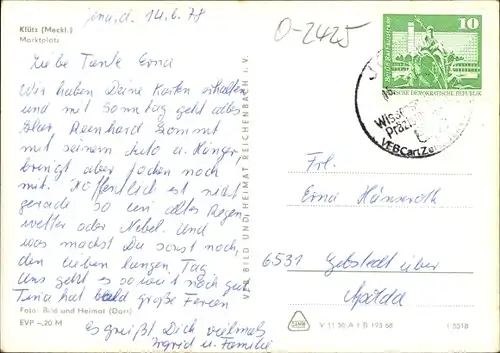 Klütz (Meckl.)
Marktplatz
Jena, d. 14.6.78
O-2425
Liebe Tante Erna
Wir haben Deine Karten erhalten
und mit Sonntag geht alles
klar, Reinhard kommt
mit seinem Auto u. Hänger
bringt aber Jochen noch
mit. Hoffentlich ist nicht
gerade so ein altes Regen
wetter oder Nebel. Und
was machst Du sonst noch,
den lieben langen Tag
Uns geht es soweit noch gut
Tina hat bald große Ferien
Es grüßt Dich vielmals
Ingrid u. Familie
Foto: Bild und Heimat (Dorr)
EVP –,20 M
VEB BILD UND HEIMAT REICHENBACH i. V.
10
DEUTSCHE DEMOKRATISCHE REPUBLIK
VEB Carl Zeiss
Frl.
Erna Hänseroth
6531 Gebstedt über
Apolda
V 11 50 A 1 B 193 68
1 5318